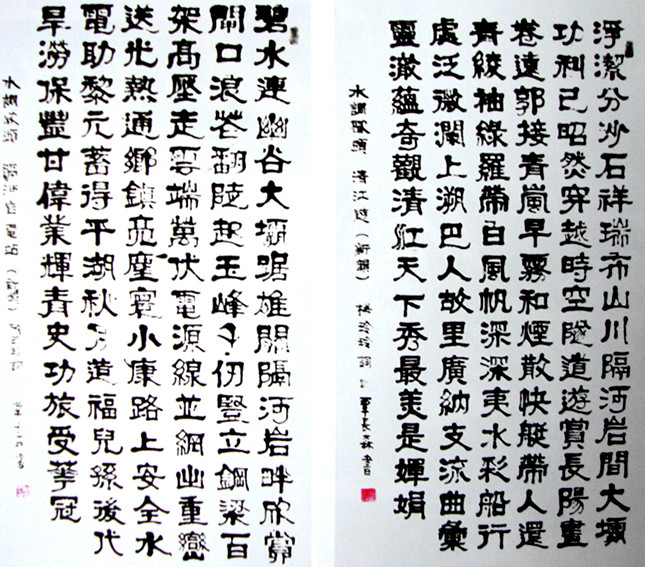 淨潔分沙石祥瑞布山川隔河岩間大壩
功利已昭然穿越時空隧道遊賞長陽畫
卷遠郭接青嵐早霧和煙散快艇帶人還
青綾袖綠羅帶白風帆深深夷水彩船行
處泛微瀾上溯巴人故里廣納支流曲彙
靈澈蘊奇觀清江天下秀最美是嬋娟
水調歌頭 清江遊（新韻） 詞 覃長森書
碧水連幽谷大壩踞雄關隔河岩畔欣賞
閘口浪花翻陡起玉峰千仞豎立鋼梁百
架高壓走雲端萬伏電源線並網出重巒
送光熱通鄉鎮亮塵寰小康路上安全水
電助黎元蓄得平湖秋月造福兒孫後代
旱澇保豐甘偉業輝青史功旅受華冠
水調歌頭 隔河岩電站（新韻） 書